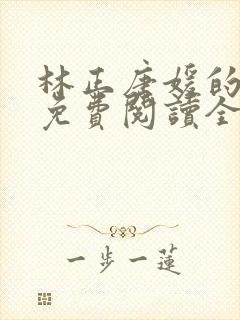 林正唐媛的
免費閱讀全
一步一蓮